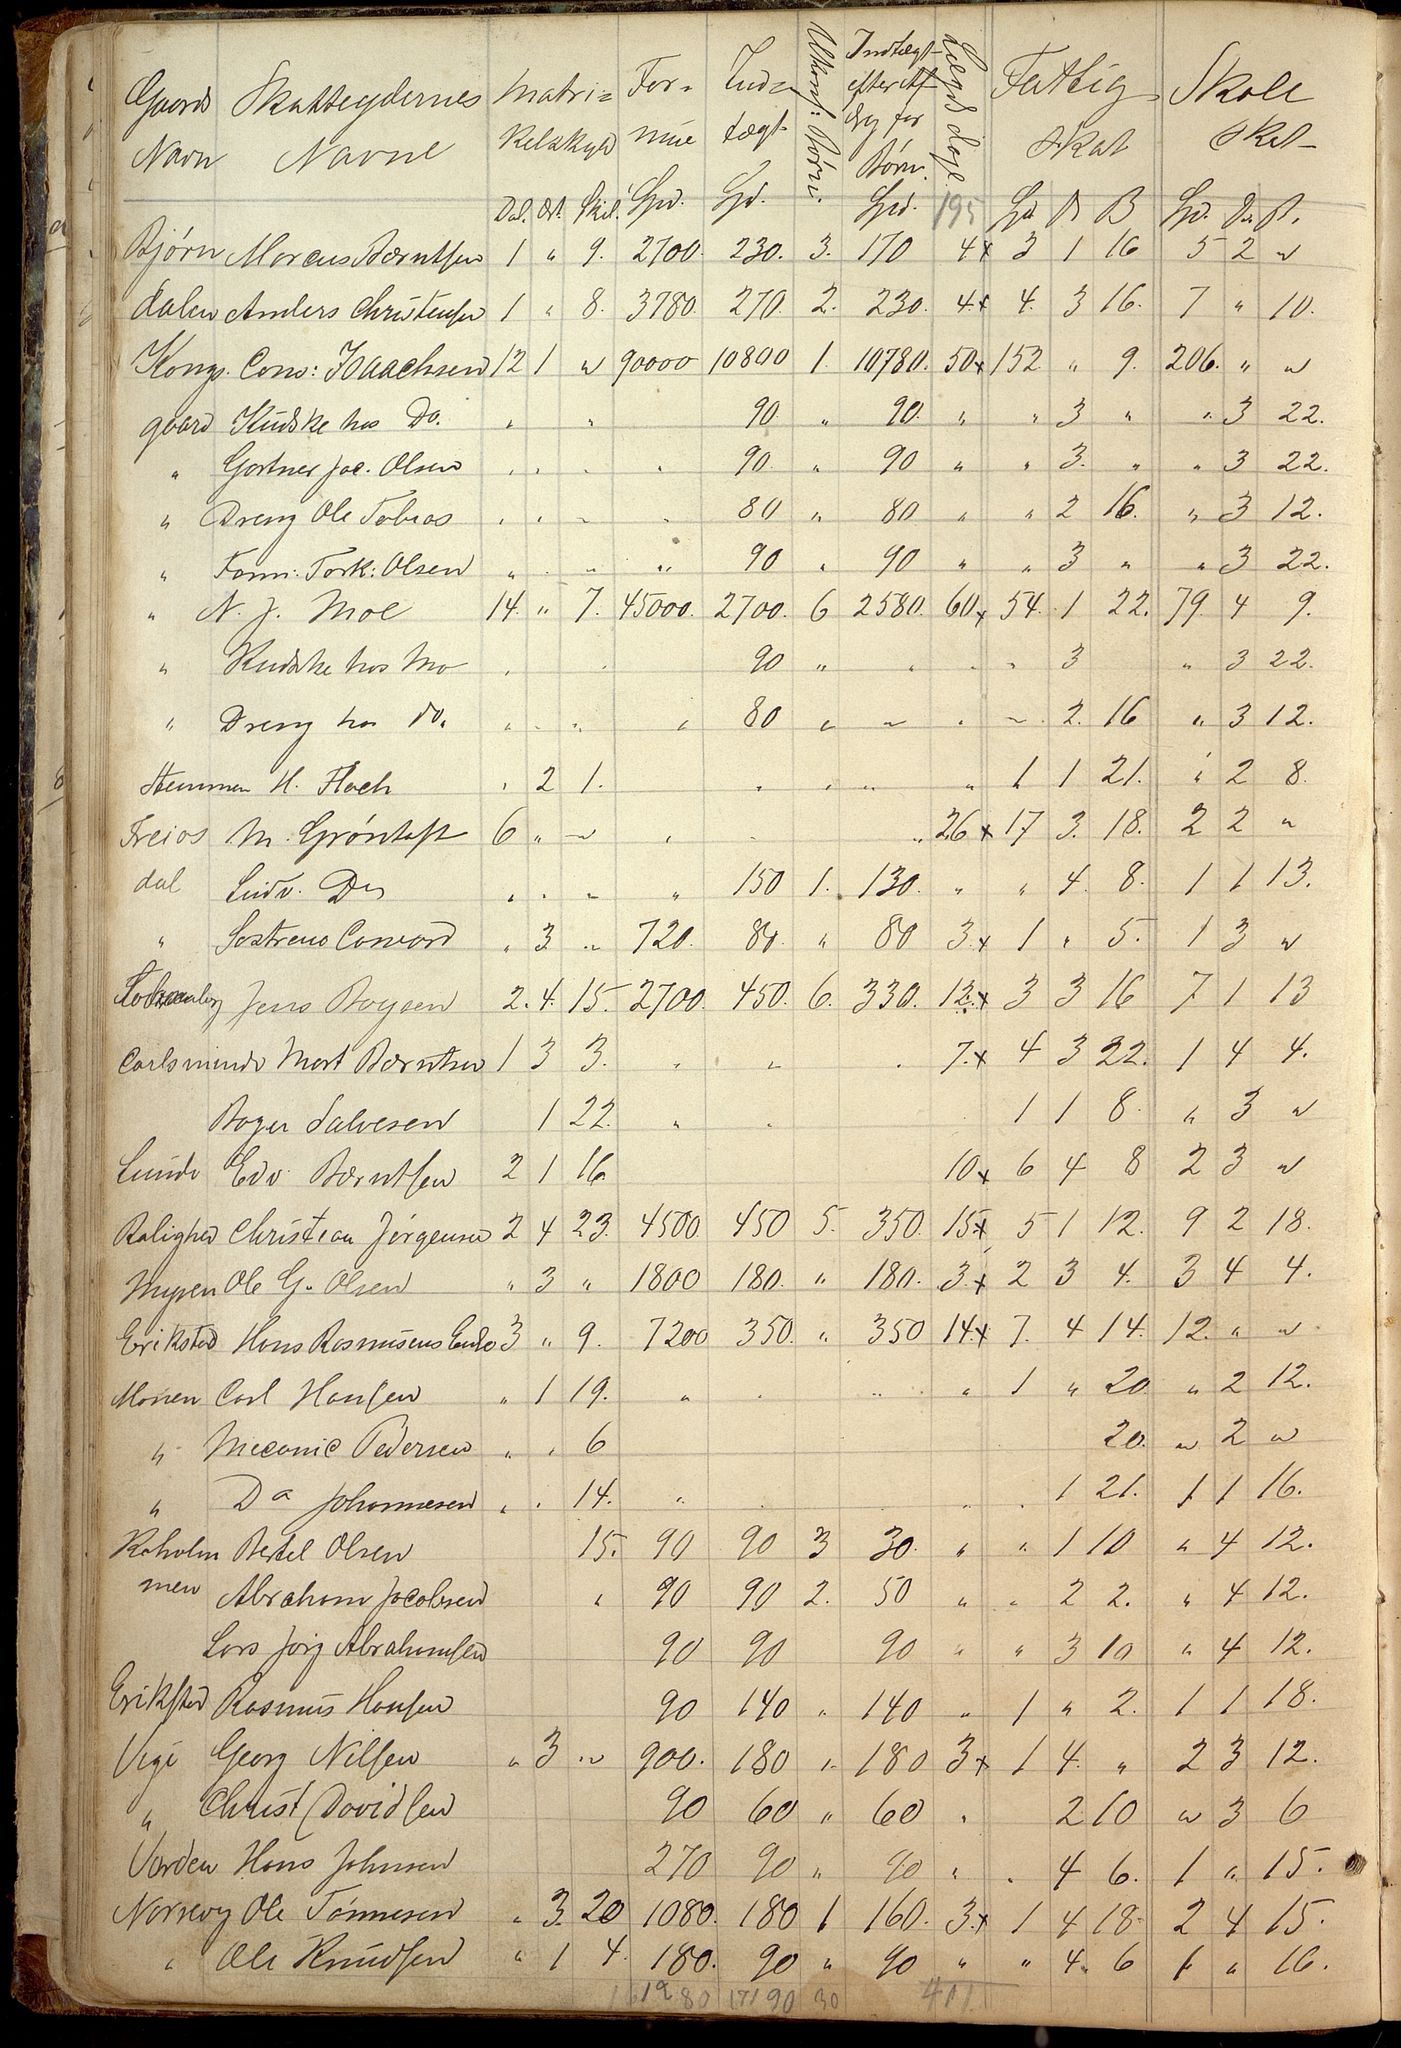 Gaards Skatteydernes Matri= For= Ind= Ukonf: Indtægt Lægd dage Fattig Skole
Navn Navne kelskyld mue tægt Børn. efter Af drag for Børn. Skat Skat
Dal. Ort. Skil. Spd. Spd. Spd. 195 Spd. B Spd.
Bjørn Marcus Bærntsen 1 " 9. 2700. 230. 3. 170 4x 3 1 16 5 2 "
dalen Anders Christensen 1 " 8. 3780. 270. 2. 230. 4.x 4. 3 16. 7 " 10.
Kongs. Cons: Isaachsen 12 1 " 90000 10800 1. 10780. 50x 152 " 9. 206. " "
gaard Kudske hos Do. " " 90 " 90. " " 3 " " 3 22.
" Gartner Jac. Olsen " " " " 90. " 90 " " 3. " " 3 22.
" Dreng Ole Tobias " " " " 80 " 80 " " 2 16. " 3 12.
" Form: Tork: Olsen " " " " 90 " 90 " " 3 " " 3 22.
" N. J. Moe 14. " 7. 45000. 2700. 6 2580. 60x 54. 1 22. 79. 4 9.
" Kudske hos Mo " " 90 " " " " 3 " 3 22.
" Dreng hos do. " " " " 80 " " " " 2. 16 " 3 12.
Stemmen H. Flach " 2 1. " " " " 1 1 21. " 2 8.
Freios M. Grøntoft 6 " " " " " 26 x 17 3. 18. 2 2 "
dal Ludv. Do " " " " 150 1. 130. " " 4. 8. 1 1 13.
" Søstrene Conrord " 3 " 720. 80. " 80 3.x 1 " 5. 1 3 "
Jens Boysen 2. 4. 15. 2700. 450. 6. 330. 12.x 3 3 16 7 1 13
Carlsminde Mort Bærntsen 1 3 3. " " " 7.x 4 3 22. 1 4 4.
Boye Salvesen 1 22. " " 1 1 8. " 3 "
Lunde Edv. Bærntsen 2 1 16. 10x 6 4 8 2 3 "
Rolighed Christian Jørgensen 2 4 23. 4500. 450 5. 350. 15x 5 1 12. 9 2 18.
Myren Ole G. Olsen " 3 " 1800 180. " 180. 3.x 2 3 4. 3 4 4.
Erikstad Hans Rasmusens Enke 3 " 9. 7200 350. " 350 14.x 7. 4 14. 12. " "
Monen Carl Hansen " 1 19. " " " " 1 " 20 " 2 12.
" Mecanic Pedersen " " 6 20. " 2 "
" Do Johannesen " " 14. " " " " " 1 21. 1 1 16.
Roholm Bertel Olsen 15. 90 90 3 30. " " 1 10 " 4 12.
men Abraham Jacobsen " 90 90 2. 50 " " 2 2. " 4 12.
Lars Jørg Abrahamsen 90 90 90 " " 3 10 " 4 12.
Erikstad Rasmus Hansen 90 140 " 140 " 1 " 2. 1 1 18.
Vige Georg Nilsen " 3 " 900. 180 " 180 3x 1 4. " 2 3 12.
" Christ Davidsen 90 60 " 60 " 2 10 " 3 6
Varden Hans Johnsen 270 90 " 90 " " 4 6. 1 " 15.
Norrevig Ole Tønnesen " 3. 20 1080. 180 1 160. 3.x 1 4 18 2 4 15.
" Ole Knudsen " 1 4. 180. 90 " 90 " " 4. 6 1 " 16.
401